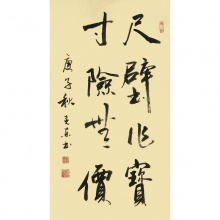 尺璧非寶
寸陰無價
庚子秋書